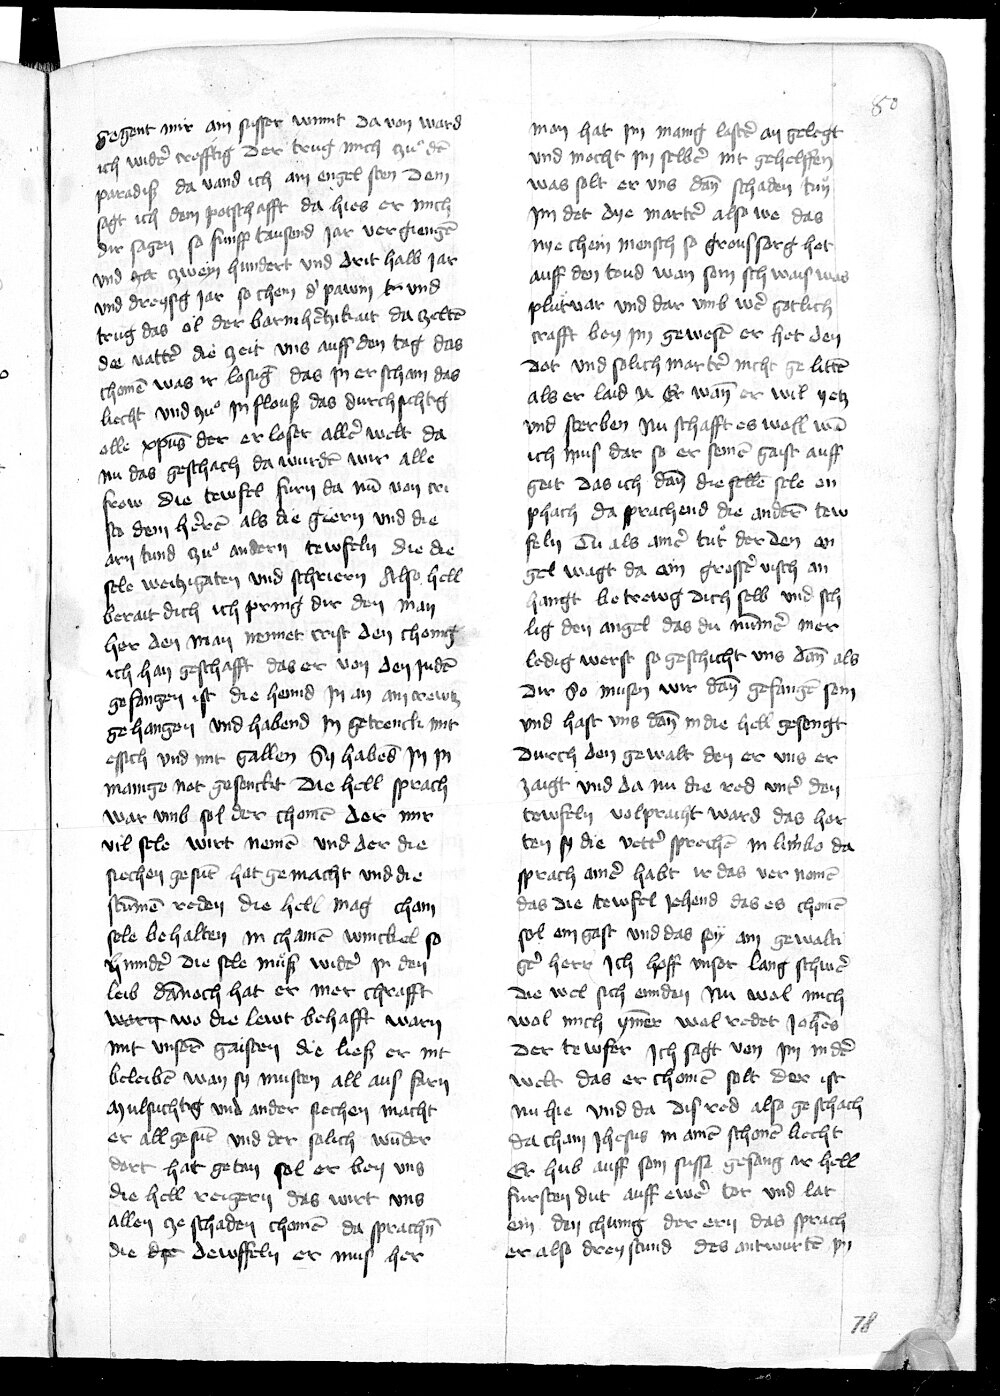 80
gegent mir ain susser wint da von ward
ich wider̄ crefftig Der trug mich zuͦ dē
paradiſz da vand ich ain engel sten Dem
sagt ich dem potschafft da hies er mich
dir sagen so funff tausend jar vergiengē
und zwein hundert und drit halb jar
und dreysig jar so chem d' pawm und
trug das ol der barmhēzikait da zeltē
die vattē die zeit uns auff den tag das
chomē was ir losūg das in erscham das
liecht und zuͦ in flouſz das durchsichtig
olle xpūs der erloser allē welt da
nu das geschach da wurdē wir alle
frow die tewfel furn da nū von cri
sto dem hērē als die giern und die
arn tund zuͦ andern tewfeln die die
sele weitzigaten und schriern Also hell
berait dich ich pring dir den man
her den man nennet crist den chonig
ich han geschafft das er von den judē
gefangen ist die hennd in an ain crewtz
gehangen und habend in getrenckt mit
essich und mit gallen Sy habēt in in
mainge not gesenckt Die hell sprach
war umb sol der chomē der mir
vil sele wirt nemē und der die
siechen gesūt hat gemacht und die
stūmen reden die hell mag cham
sele behalten in chainē winckel so
hindē die sele muͤſz widē in den
leib dānoch hat er mer chrafft
wo die lewt behafft warn
mit unserē gaisten die lieſz er nit
beleibē wan sy musten all aus farn
Mulsichtig und ander siechen macht
er all gesūt und der solich wūder
dort hat getan sol er bey uns
die hell reigern das wirt uns
allen ze schaden chomē da sprachn̄
die dewffeln er mus her
man hat im manig lastē an gelegt
und mocht im selbē nit gehelffen
was solt er uns dañ schaden tuͤn
im det dye martē also we das
nye chein mensch so grousſorg het
auff den toud wan som ich wais was
plut war und dar umb wē gotlich
crafft bey im gewesē er het den
Dot und solich martē nicht gelittē
als er laid ye Er wañ er wil yetz
und sterben Nu schafft es woll wā
ich mus dar so er seinē gaist auff
geit das ich dañ die selbē sele en
phach da sprachend die anderē tew
feln Tu als ainē tuͦt der den an
gel wagt da ein grossē visch an
hangt betrewg dich selb und sch
lig den angel das du nūmē mer
ledig werst so geschicht uns dañ als
dir So musen wir dañ gefangē sein
und hast uns dañ in die hell gesengt
durch den gewalt den er uns er
zaigt und da nu die red untē den
tewfeln volpracht ward das hor
ten sy die vettē sprechē in limbo da
sprach ainē habt ir das vernomē
das die tewfel jehend das es chomē
sol ein gast und das sey ain gewalti
gē herr Ich hoff unser lang schwē
die wel sich enndan Nu wol mich
wol mich ymēr wol redet johēs
der tewfer Ich sagt von im in dē
welt das er chomē solt der ist
nu hie und da dis red also geschach
da cham jhesus in ainē schonē liecht
Er hub auff sein susse gesang ir hell
fursten dut auff ewē tor und lat
ein den chunig der ern das sprach
er also drey stund des antwurtē in
78